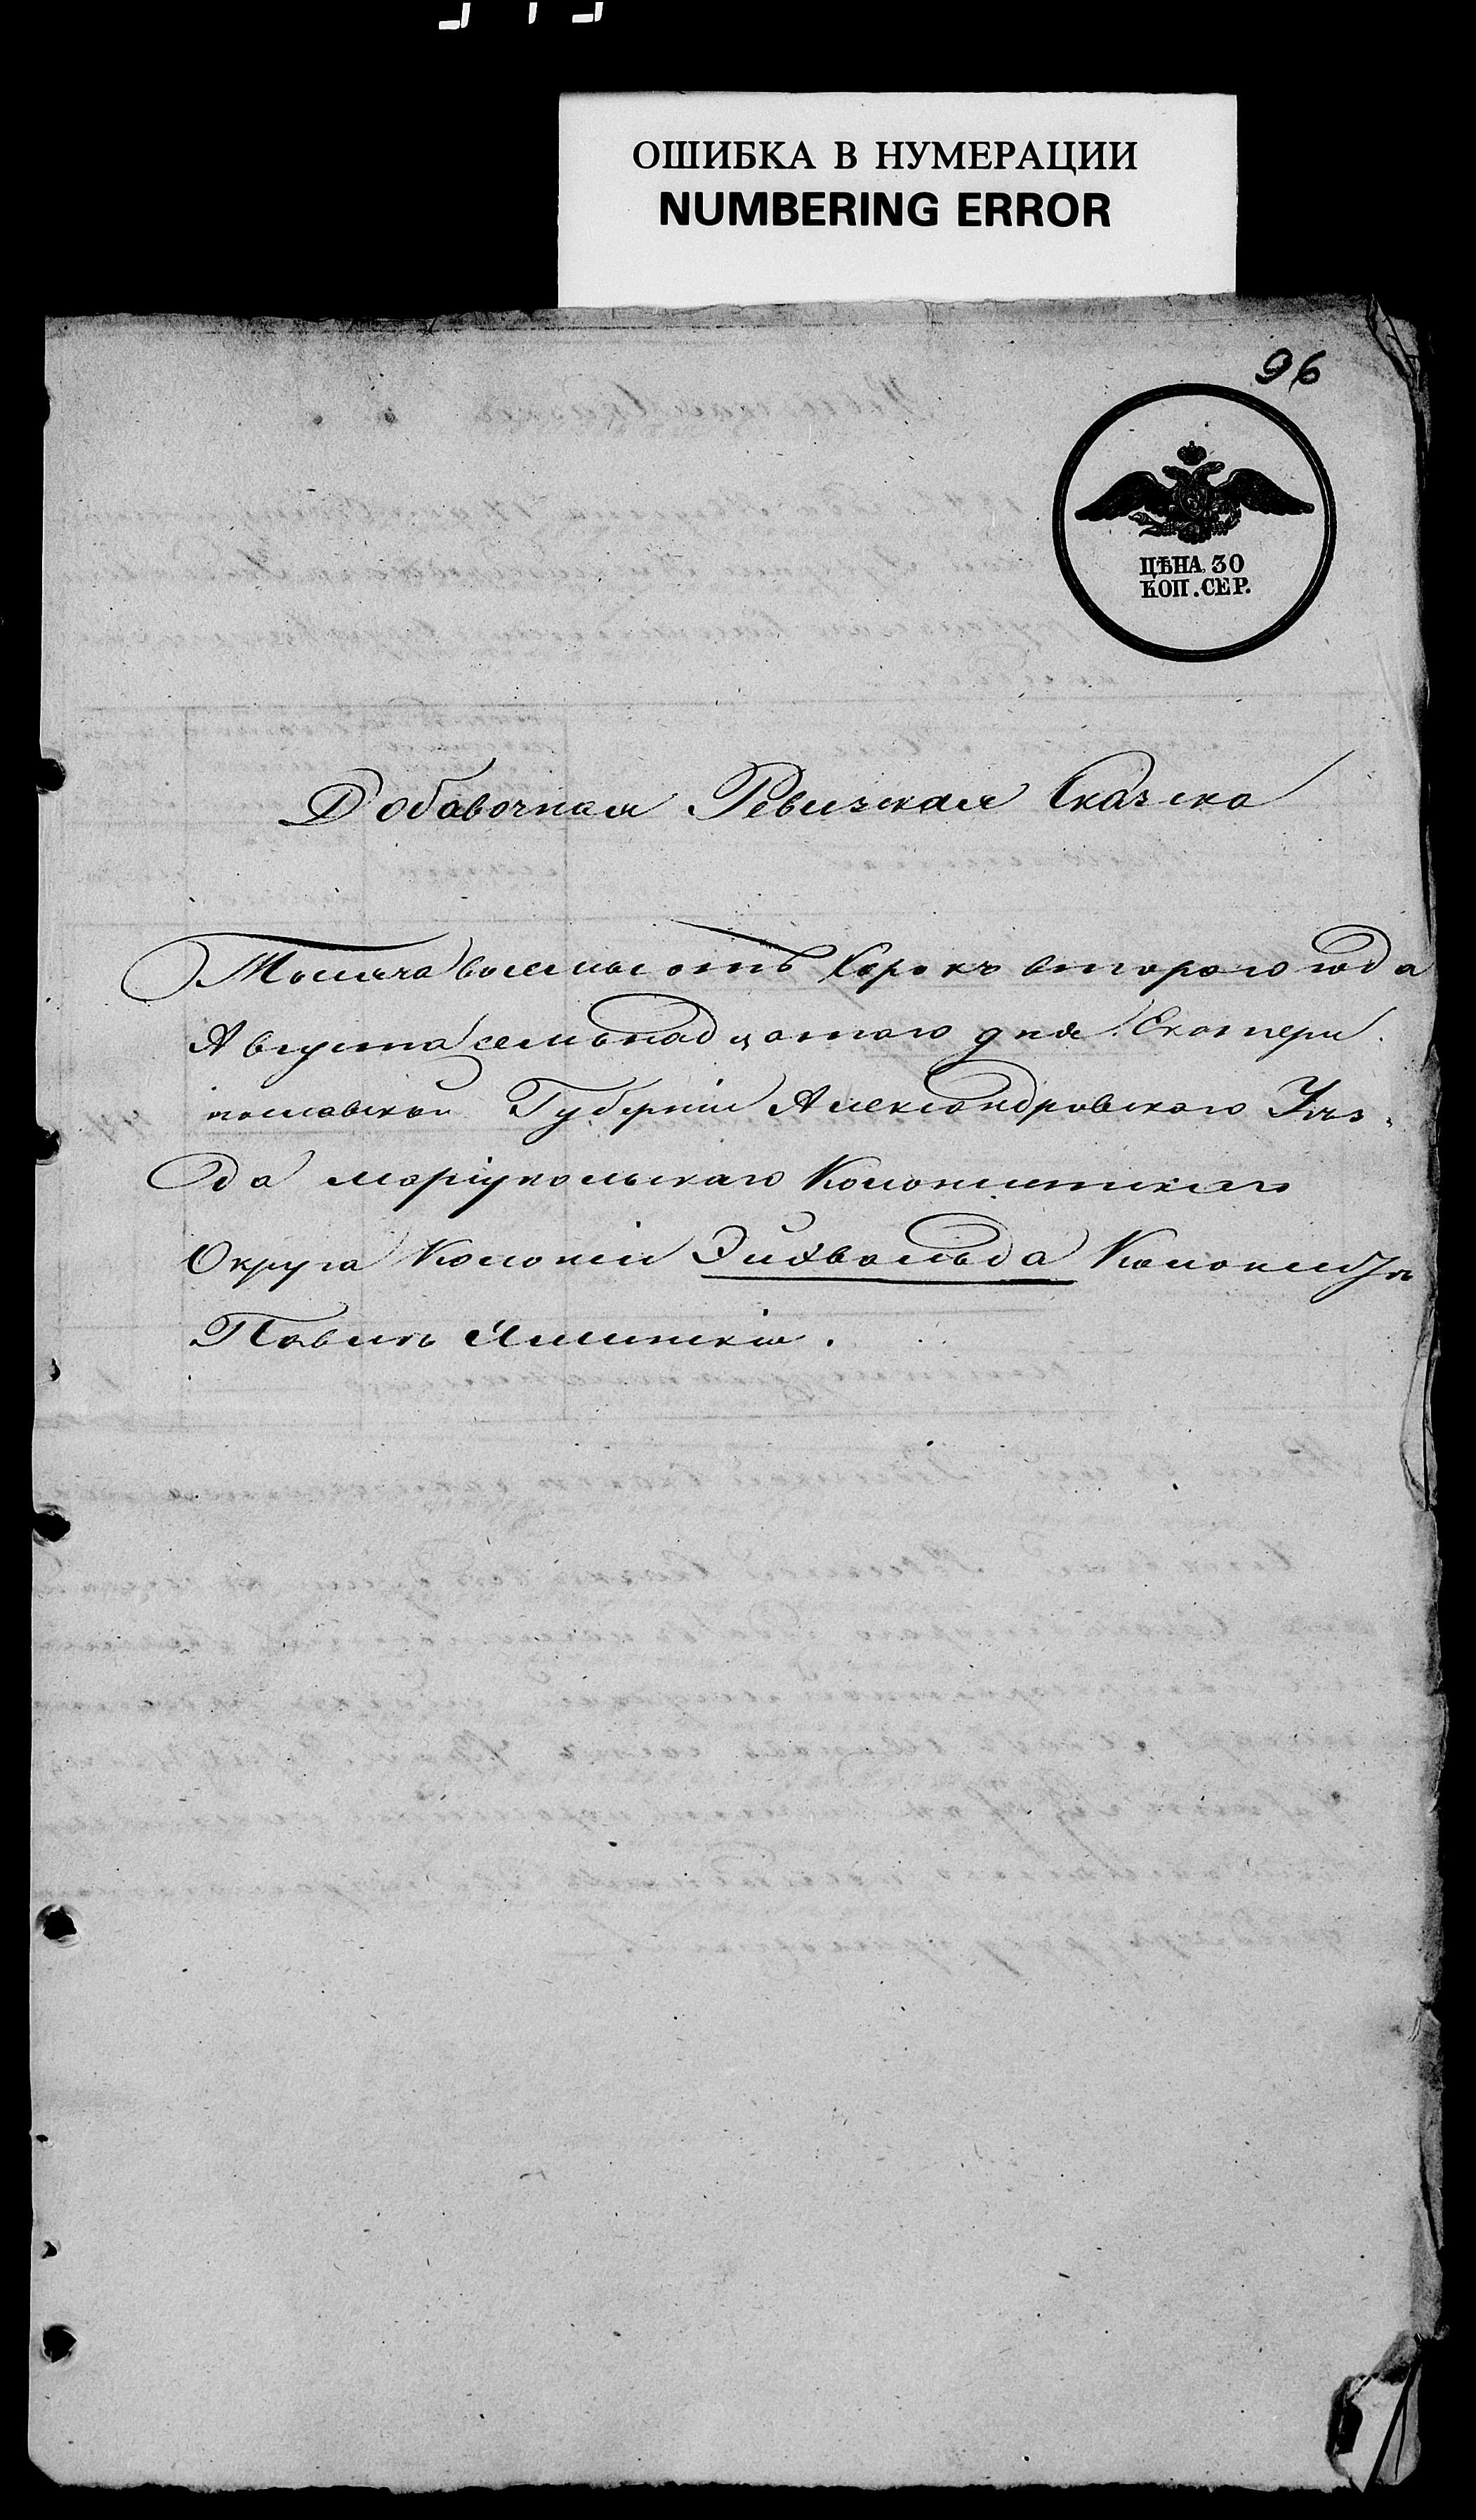 ОШИБКА В НУМЕРАЦИИ
NUMBERING ERROR
96
ЦѢНА 30
КОП. СЕР.
Добавочная Ревизская Сказка
Тысяча восемьсотъ Сорокъ втораго года
Августа семьнадцатаго дня Екатери
нославской Губерніи Александровскаго Уѣз
да маріупольскаго Колонистскаго
Округа Колоніи Эйхвальда Колонистъ
Павелъ Ялинскій.